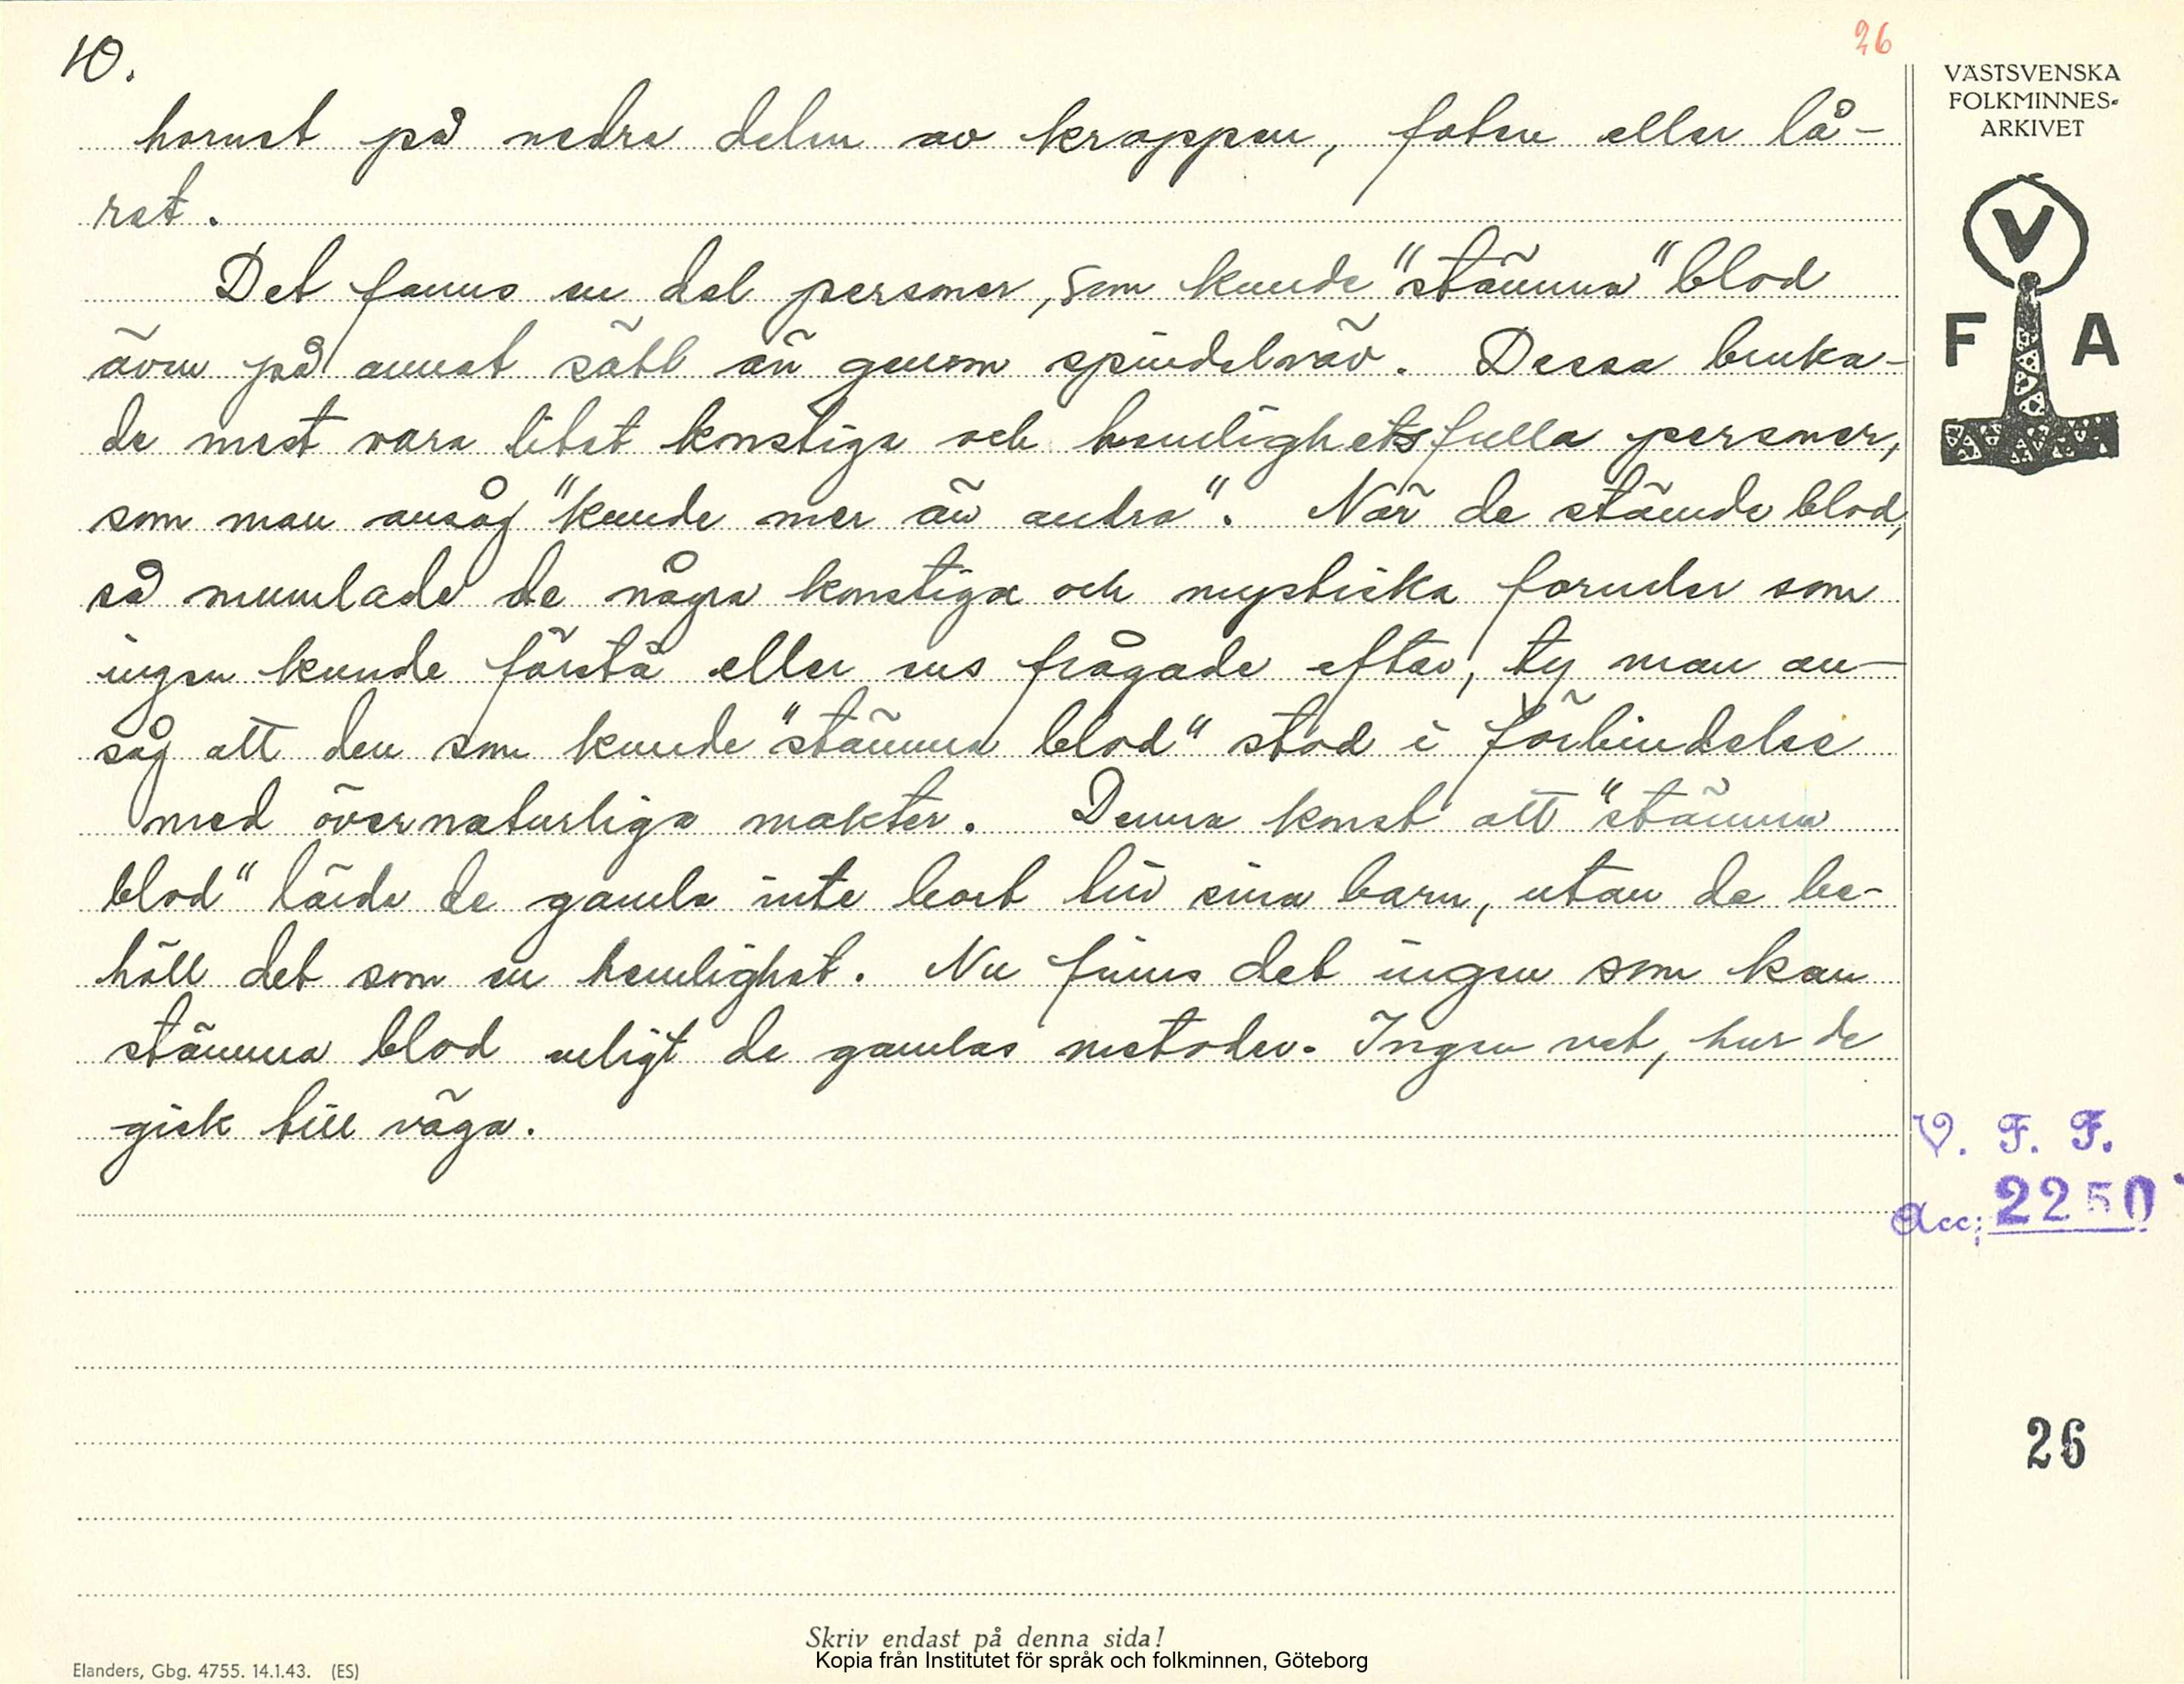 10.
26
hornet på nedre delen av kroppen, foten eller lå-
ret.
Det fanns en del personer, som kunde "stämma" blod
även på annat sätt än genom spindelnäv. Dessa bruka-
de mest vara litet konstiga och hemlighetsfulla personer,
som man ansåg "kunde mer än andra". När de stämde blod,
så mumlade de några konstiga och mystiska formler som
ingen kunde förstå eller ens frågade efter, ty man an-
såg att den som kunde "stämma blod" stod i förbindelse
med övernaturliga makter. Denna konst att "stämma
blod" lärde de gamla inte bort till sina barn, utan de be-
höll det som en hemlighet. Nu finns det ingen som kan
stämma blod enligt de gamlas metoder. Ingen vet, hur de
gick till väga.
VÄSTSVENSKA
FOLKMINNES-
ARKIVET
V
F A
V. F. F.
Acc; 2250
26
Skriv endast på denna sida!
Kopia från Institutet för språk och folkminnen, Göteborg
Elanders, Gbg. 4755. 14.1.43. (ES)